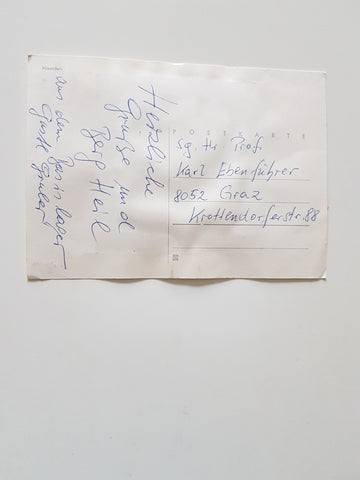 Absender:
Herzliche
Grüße und
Berg Heil
aus dem Basislager
Gustl Gruber
POSTKARTE
Sg. Hr. Prof.
Karl Ebenführer
8052 Graz
Krottendorferstr. 88